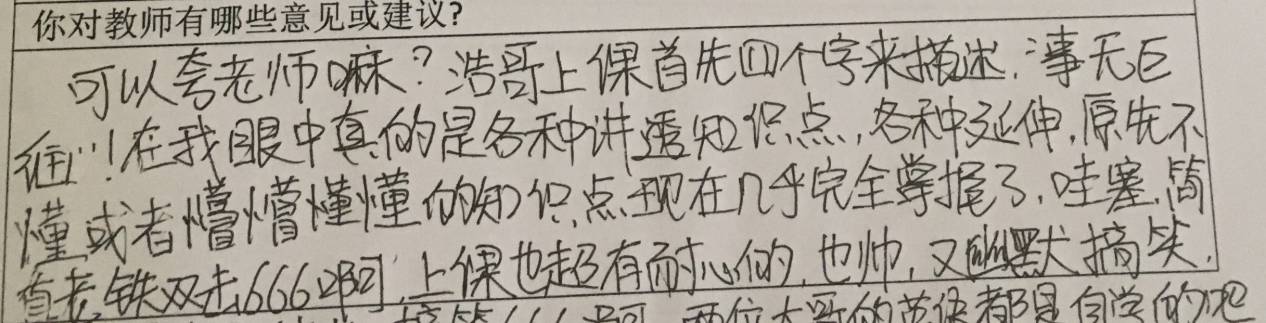 你对教师有哪些意见或建议?
可以夸老师嘛?浩哥上课首先四个字来描述:事无巨
细!在我眼中真的是各种讲透知识点,各种延伸,原先不
懂或者懵懵懂懂的知识点现在几乎完全掌握了,哇塞,简
直老铁双击666啊,上课也超有耐心的,也帅,又幽默搞笑,
666啊 两位大哥的英语都是自学的吧